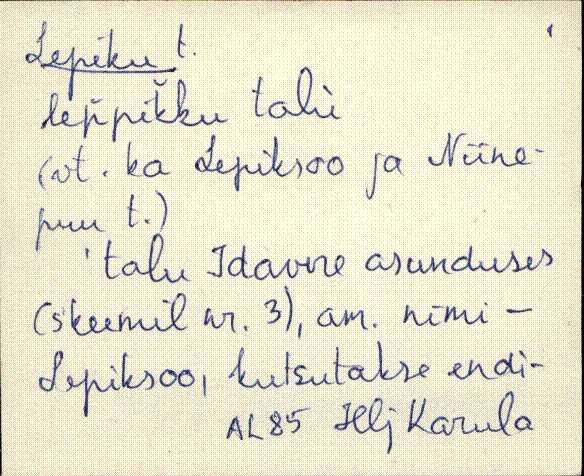 Lepiku t.
lep̆pĭkku talù
(vt. ka Lepiksoo ja Niine-
puu t.)
talu Idavere asunduses
(skeemil nr. 3), am. nimi -
Lepiksoo, kutsutakse endi-
AL85 Hlj Karula